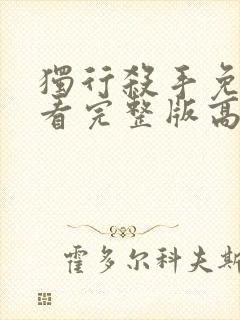 獨行殺手免
看完整版高
霍多尔科夫斯